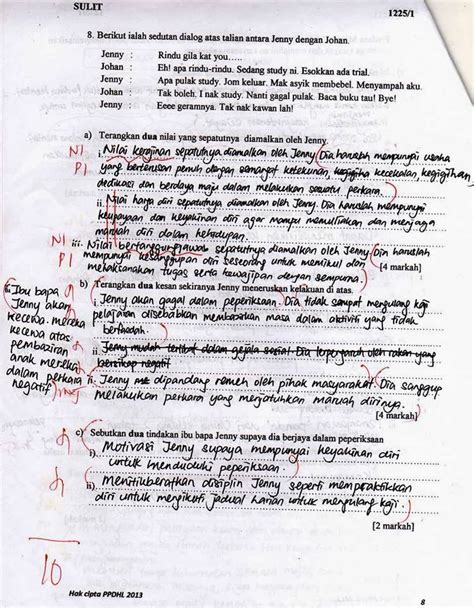 SULIT
1225/1
8. Berikut ialah sedutan dialog atas talian antara Jenny dengan Johan.
Jenny : Rindu gila kat you......
Johan : Eh! apa rindu-rindu. Sedang study ni. Esokkan ada trial.
Jenny : Apa pulak study. Jom keluar. Mak asyik membebel. Menyampah aku.
Johan : Tak boleh. I nak study. Nanti gagal pulak. Baca buku tau! Bye!
Jenny : Eeee geramnya. Tak nak kawan lah!
a) Terangkan dua nilai yang sepatutnya diamalkan oleh Jenny.
N1 i. Nilai kerajinan sepatutnya diamalkan oleh Jenny. Dia haruslah mempunyai usaha
P1 yang berterusan penuh dengan semangat ketekunan, kecekalan, kegigihan,
dedikasi dan berdaya maju dalam melakukan sesuatu perkara.
ii. Nilai harga diri sepatutnya diamalkan oleh Jenny. Dia haruslah mempunyai
keupayaan dan keyakinan diri agar mampu memuliakan dan menjaga
maruah diri dalam kehidupan.
N1 iii. Nilai bertanggungjawab sepatutnya diamalkan oleh Jenny. Dia haruslah
P1 mempunyai kesanggupan diri seseorang untuk memikul dan
melaksanakan tugas serta kewajipan dengan sempurna.
[4 markah]
b) Terangkan dua kesan sekiranya Jenny meneruskan kelakuan di atas.
i. Jenny akan gagal dalam peperiksaan. Dia tidak sempat mengulang kaji
pelajaran disebabkan membazirkan masa dalam aktiviti yang tidak
berfaedah.
ii. Jenny mudah terlibat dalam gejala sosial. Dia terpengaruh oleh rakan yang
bersikap negatif
ii. Jenny dipandang remeh oleh pihak masyarakat. Dia sanggup
melakukan perkara yang menjatuhkan maruah dirinya.
[4 markah]
iii. Ibu bapa
Jenny akan
kecewa. mereka
kecewa atas
pembaziran
anak mereka
dalam perkara
negatif
c) Sebutkan dua tindakan ibu bapa Jenny supaya dia berjaya dalam peperiksaan
i). Motivasi Jenny supaya mempunyai keyakinan diri
untuk menduduki peperiksaan.
ii). Menitikberatkan disiplin Jenny seperti mempraktikkan
diri untuk mengikuti jadual harian untuk mengulang kaji.
[2 markah]
10
Hak cipta PPDHL 2013
8